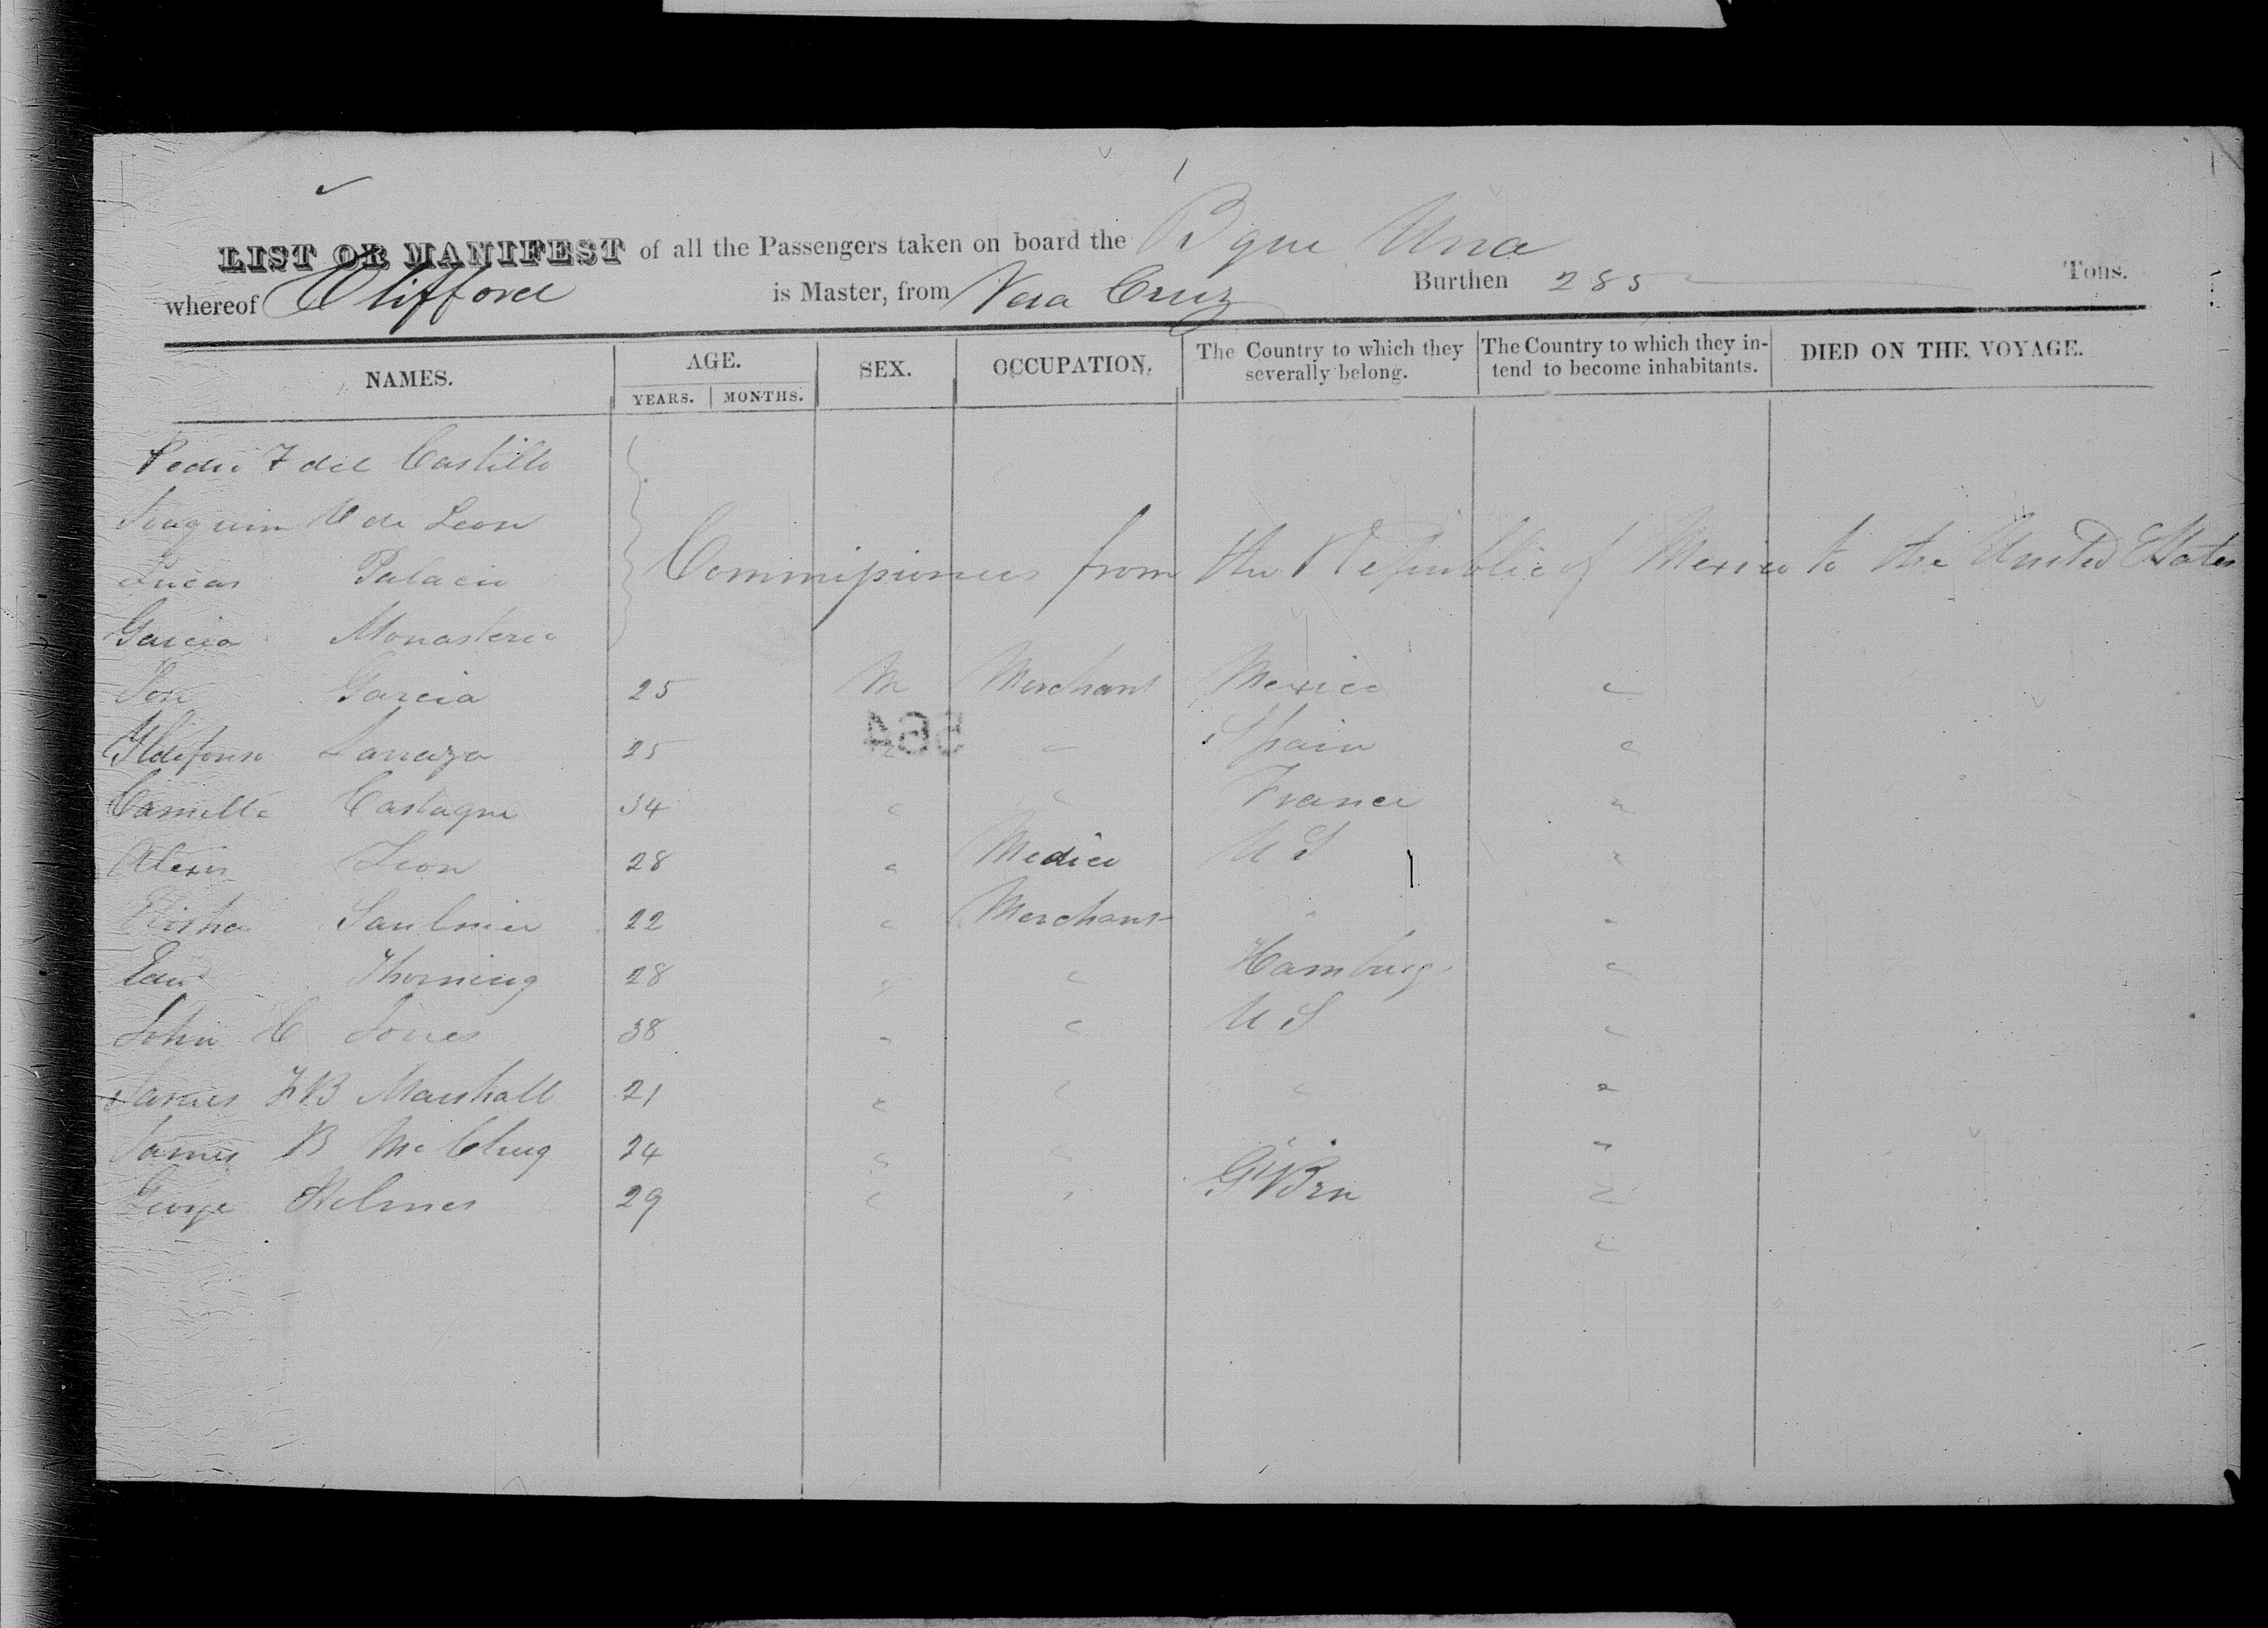 LIST OR MANIFEST of all the Passengers taken on board the Bque Una
whereof Clifford is Master, from Vera Cruz Burthen 285 Tons.
NAMES. AGE. YEARS. MONTHS. SEX. OCCUPATION. The Country to which they severally belong. The Country to which they intend to become inhabitants. DIED ON THE VOYAGE.
Pedro F del Castillo
Joaquim V de Leon
Lucas Palacio Commissioners from the Republic of Mexico to the United States
Garcia Monasterio
Jose Garcia 25 M Merchant Mexico "
Ildefonso Larraza 25 " " Spain "
564
Camille Castagne 34 " " France "
Alexis Leon 28 " Medico U S "
Elisha Saulnier 22 " Merchant " "
Edw Thorning 28 " " Hamburg "
John C Jones 38 " " U S "
James F B Marshall 21 " " " "
James B McClurg 24 " " " "
George Holmes 29 " " Gt Brn "
"